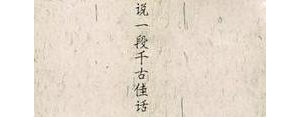 说一段千古佳话